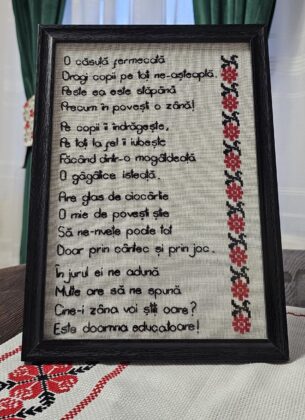 O căsuță fermecată
Dragi copii pe toți ne-așteaptă.
Peste ea este stăpână
Precum în povești o zână!
Pe copii îi îndrăgește,
Pe toți la fel îi iubește
Făcând dintr-o mogâldeață
O gâgâlice isteață.
Are glas de ciocârlie
O mie de povești știe
Să ne-nvețe poate tot
Doar prin cântec și prin joc.
În jurul ei ne adună
Multe are să ne spună
Cine-i zâna voi știți oare?
Este doamna educatoare!